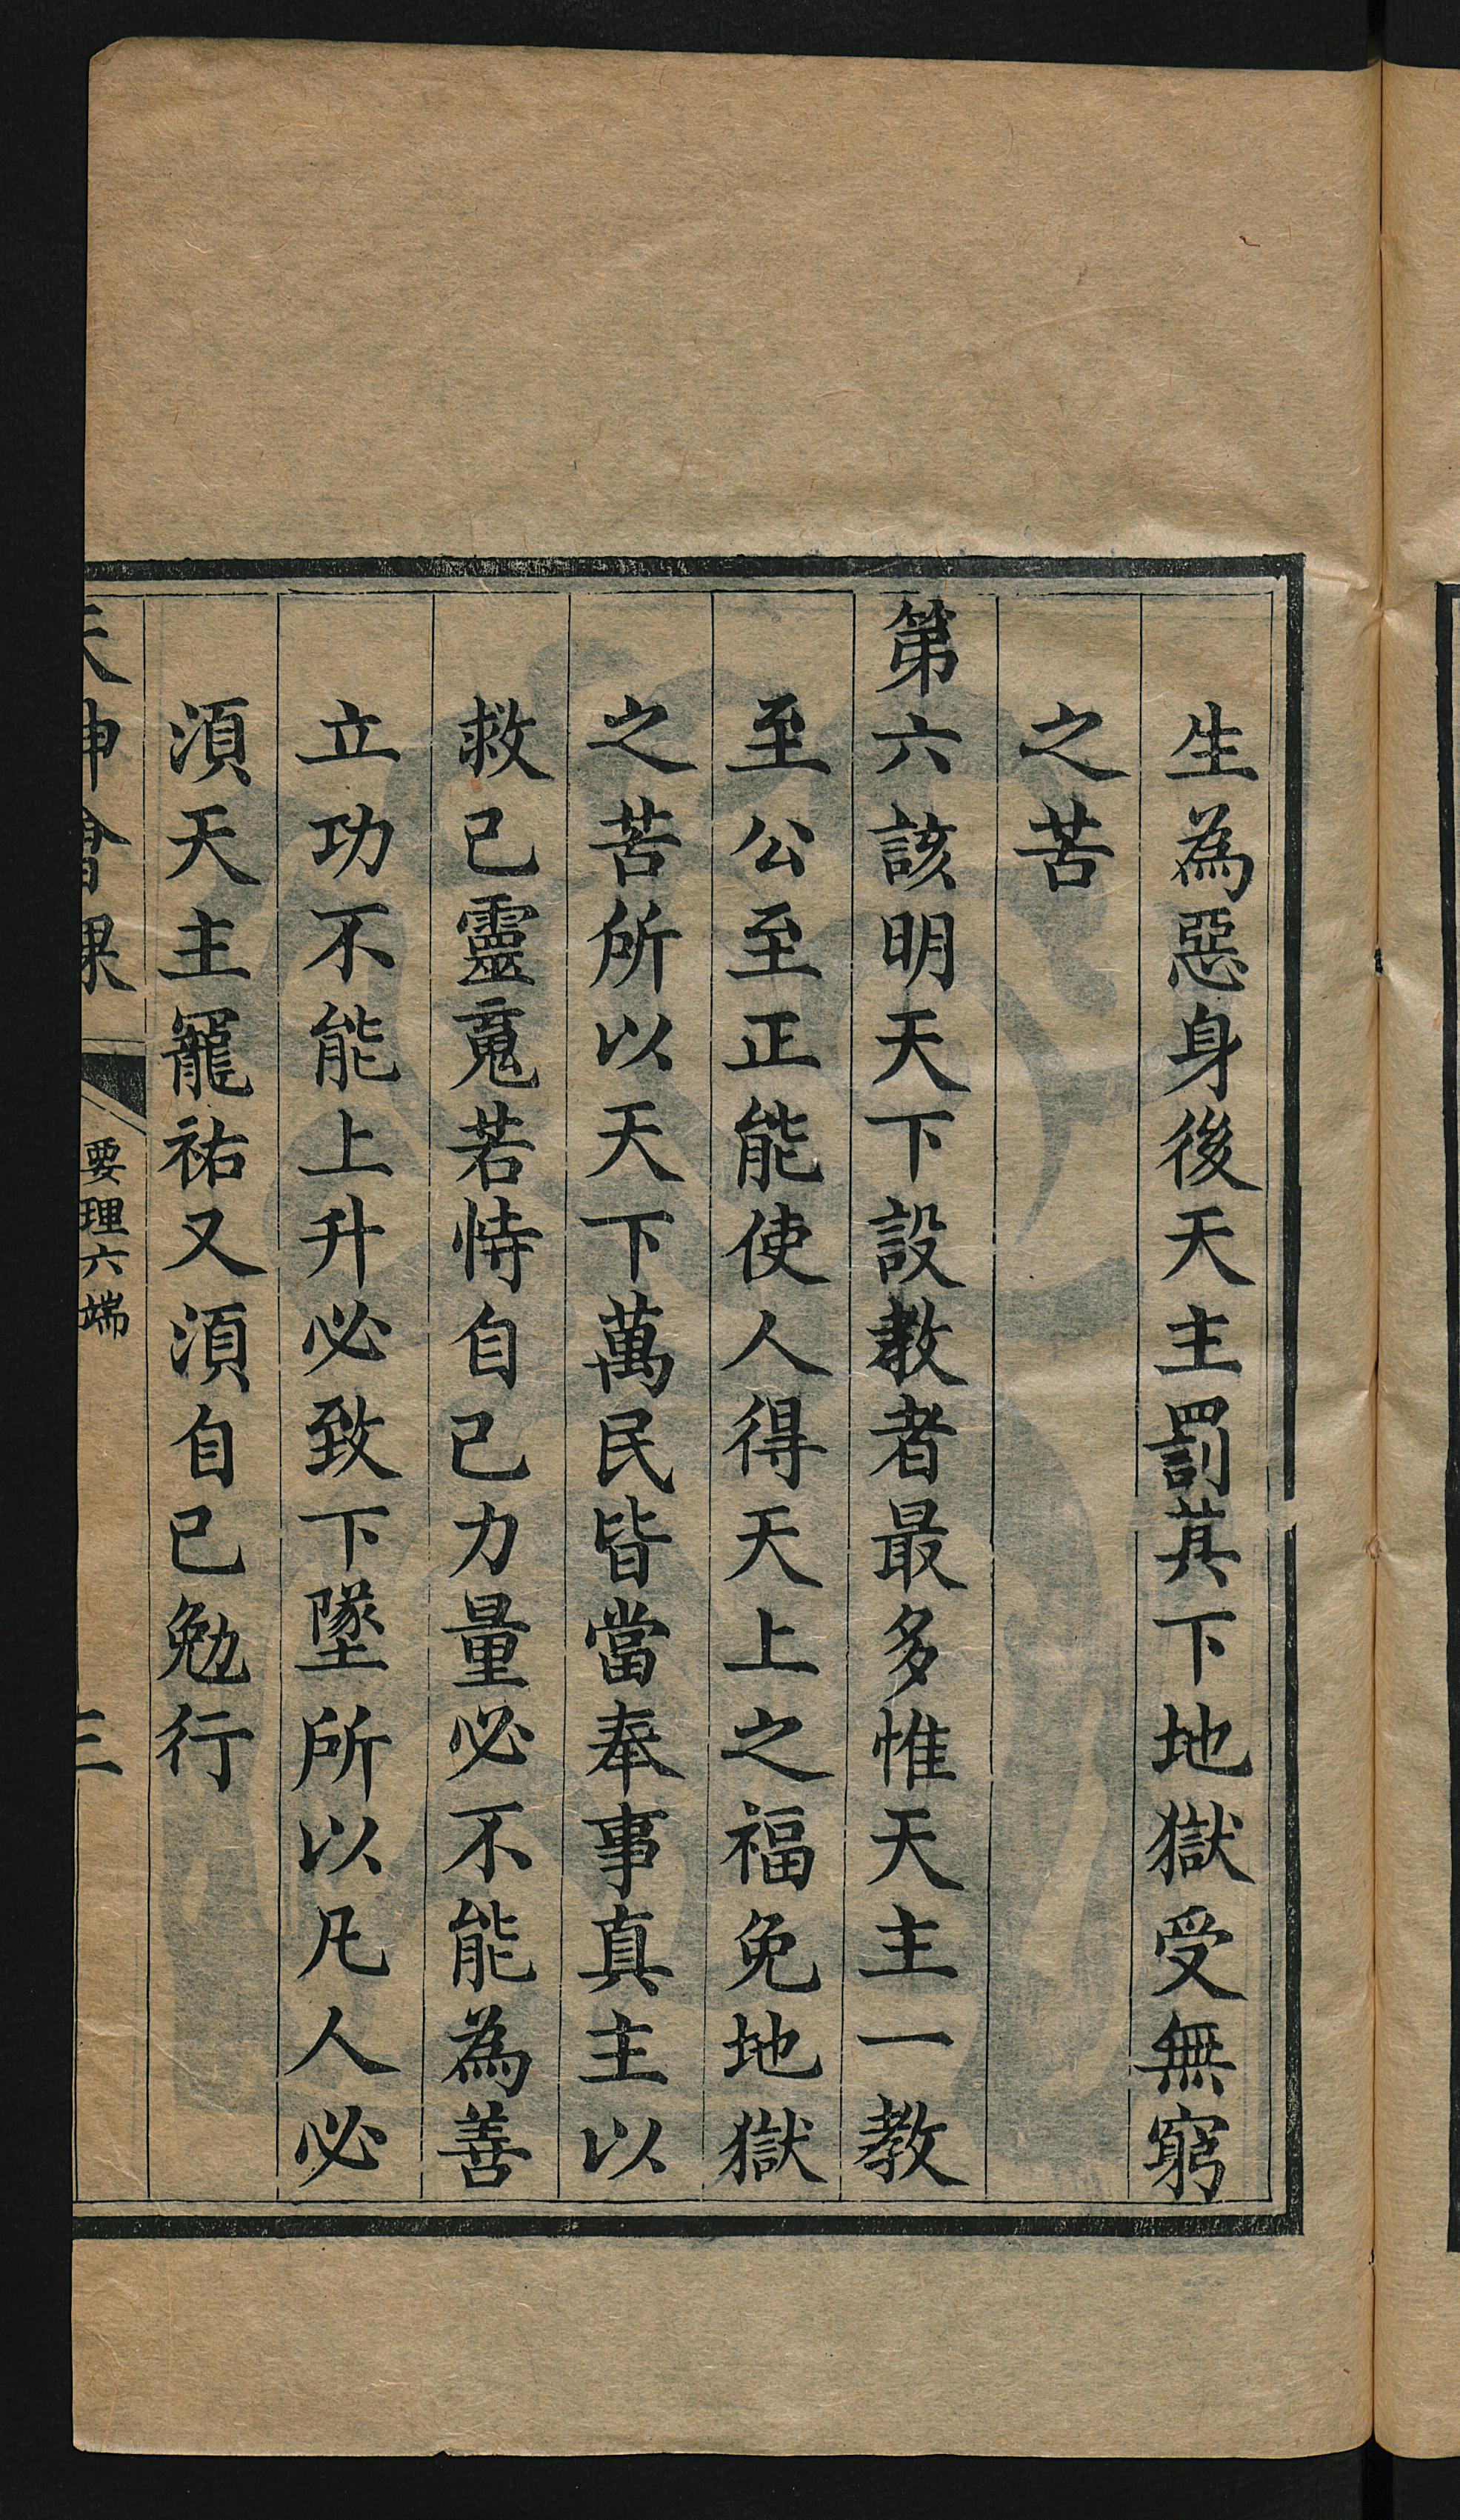 生為惡身後天主罰其下地獄受無窮
之苦
第六該明天下設教者最多惟天主一教
至公至正能使人得天上之福免地獄
之苦所以天下萬民皆當奉事真主以
救己靈䰟若恃自己力量必不能為善
立功不能上升必致下墜所以凡人必
須天主寵祐又須自己勉行
天神會課
要理六端
三